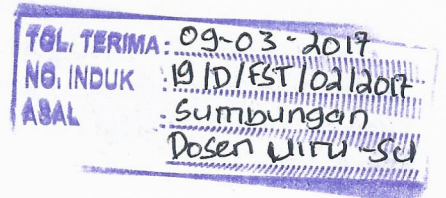 TGL. TERIMA : 09-03-2017
NO. INDUK : 19/D/FST/02/2017
ASAL : Sumbungan
Dosen UINU-SU